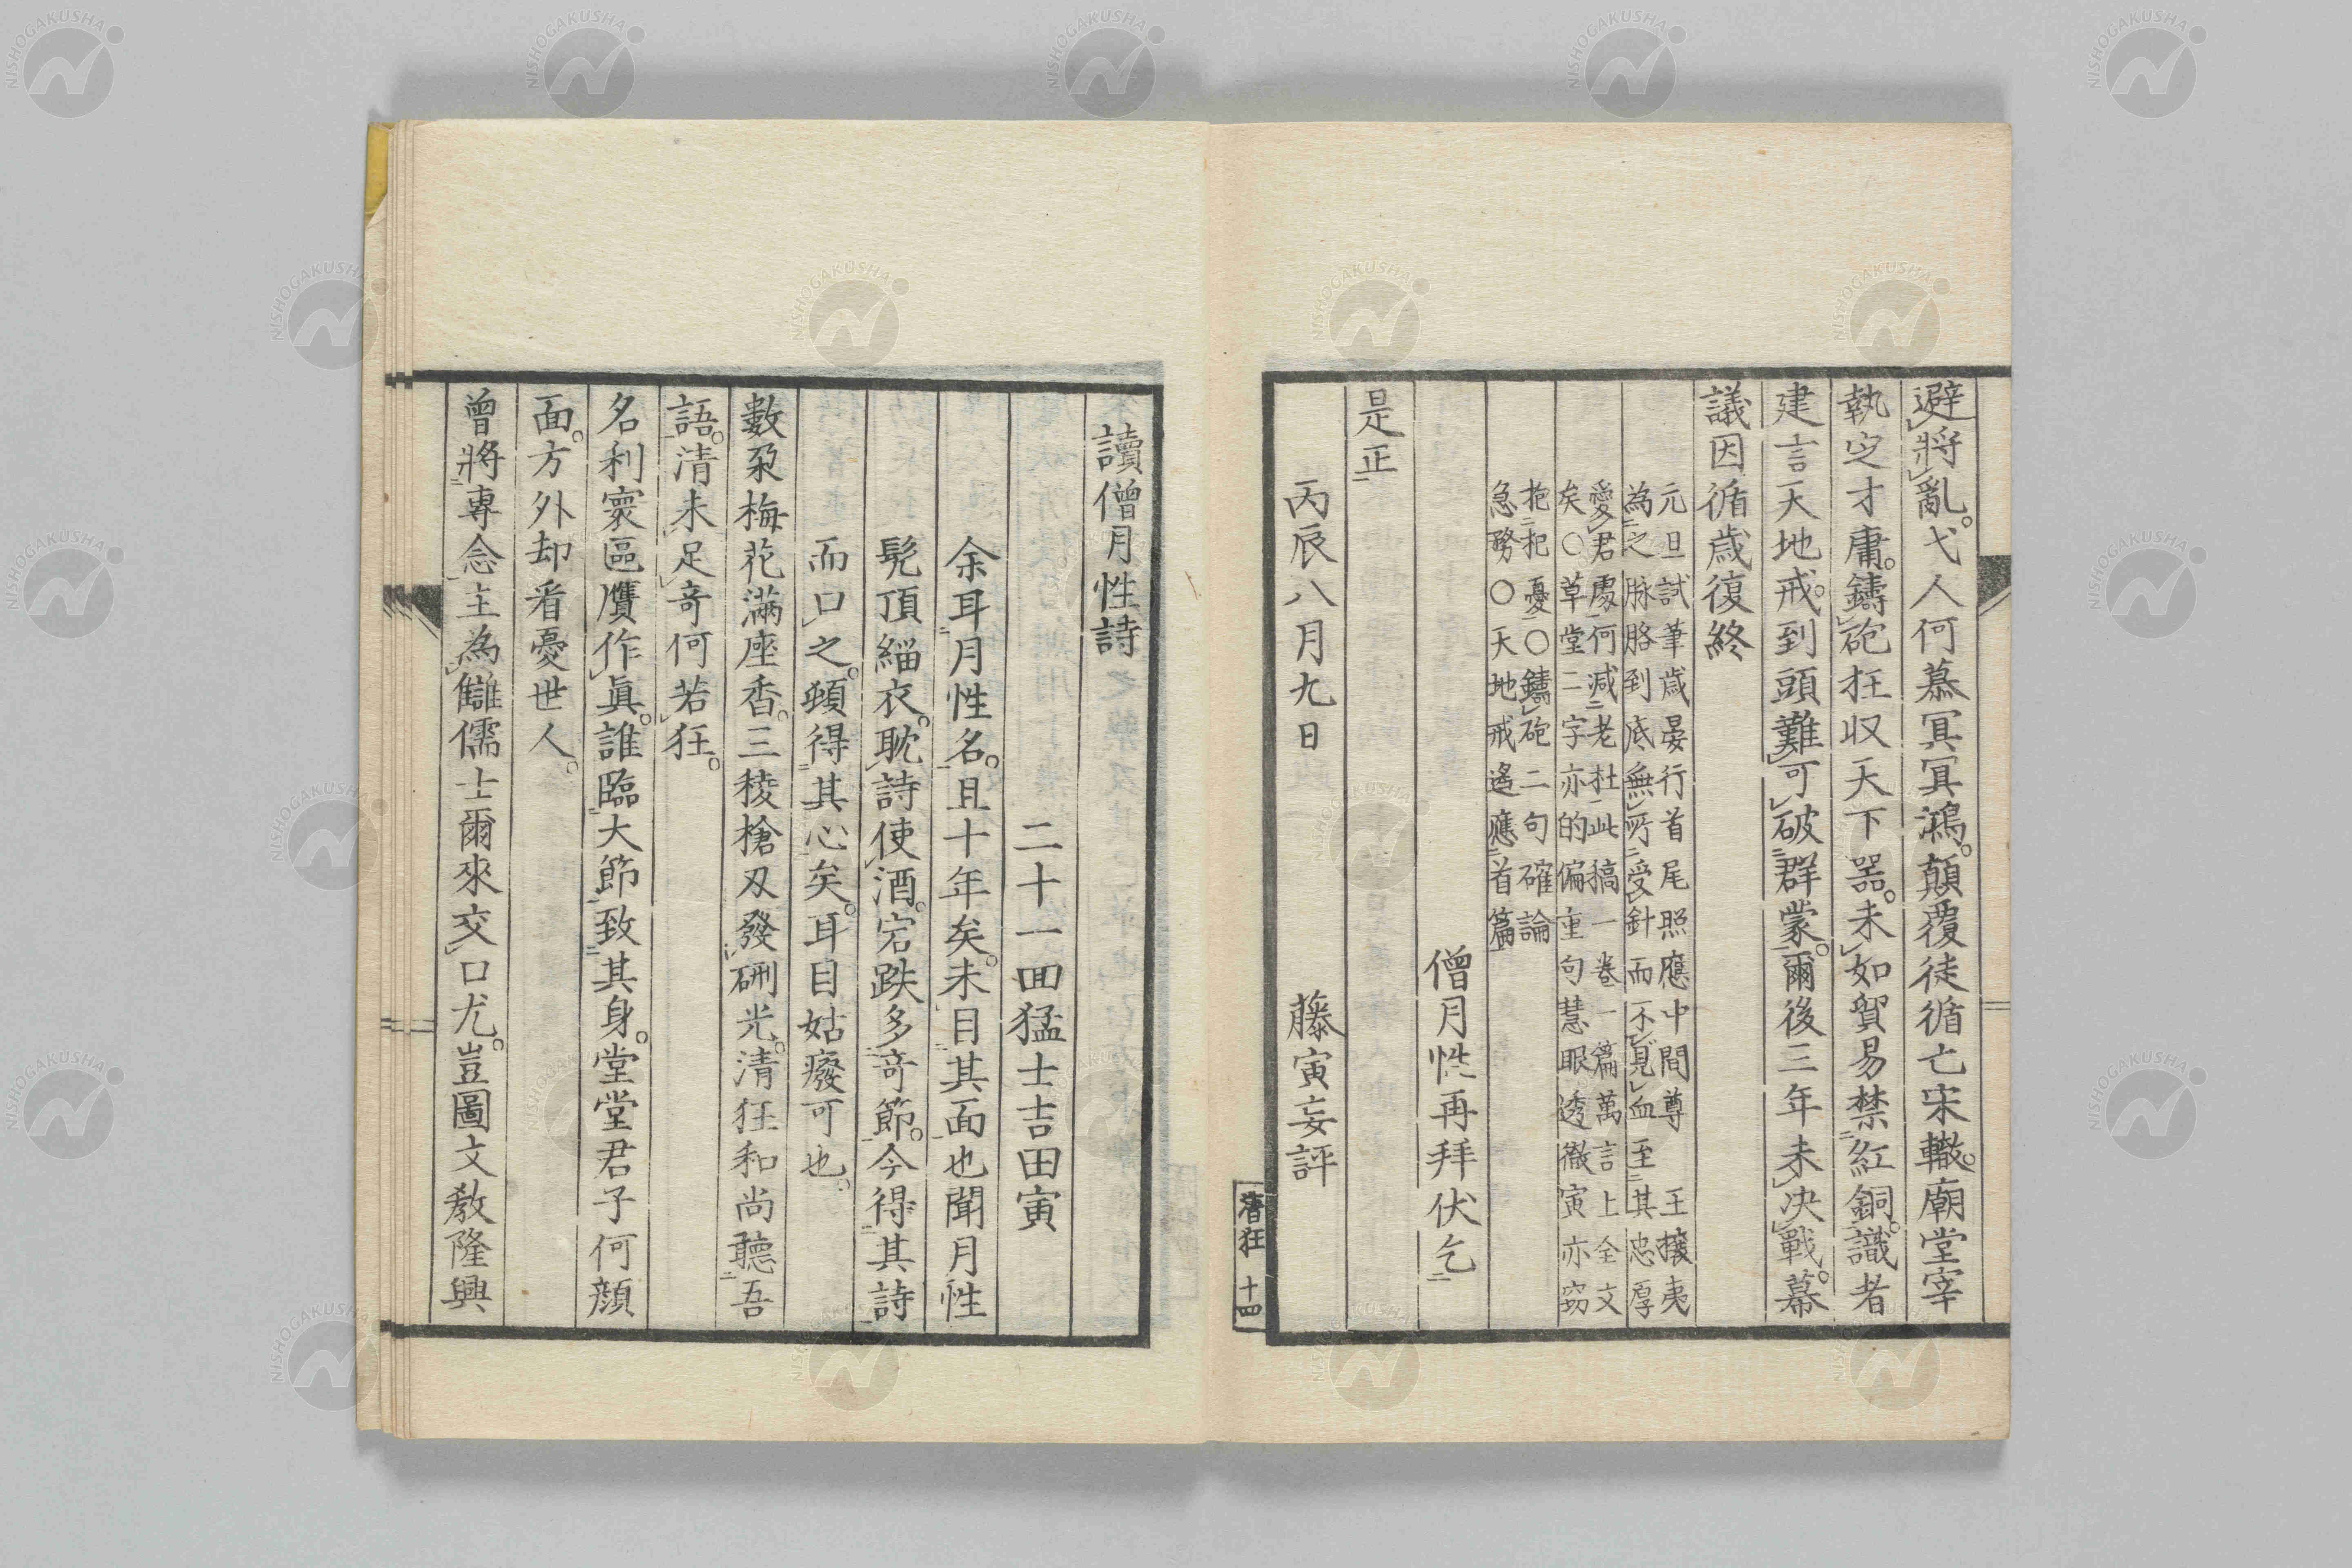 避將亂。弋人何慕冥冥鴻。顛覆徒循亡宋轍。廟堂宰
執定才庸。鑄砲狂収天下器。未如貿易禁紅銅。識者
建言天地戒。到頭難可破群蒙。爾後三年未決戰。幕
議因循歳復終
元旦試筆歳晏行首尾照應中間尊　王攘夷
為之脉胳到底無所受針而不見血至其忠厚
愛君處何減老杜此稿一卷一篇萬言上全文
矣〇草堂二字亦的偏重句慧眼透徹寅亦窃
抱杞憂〇鑄砲二句確論
急務〇天地戒遙應首篇
僧月性再拜伏乞
是正
丙辰八月九日　藤寅妄評
清狂 十四
讀僧月性詩
二十一回猛士吉田寅
余耳月性名。且十年矣。未目其面也聞月性
髠頂緇衣。耽詩使酒。宕跌多奇節。今得其詩
而口之。頗得其心矣。耳目姑癈可也。
數朶梅花滿座香。三稜槍刄發硎光。清狂和尚聽吾
語。清未足奇何若狂。
名利寰區贋作眞。誰臨大節致其身。堂堂君子何顔
面。方外却看憂世人。
曾將專念主為讎儒士爾來交口尤。豈圖文教隆興
NISHOGAKUSHA